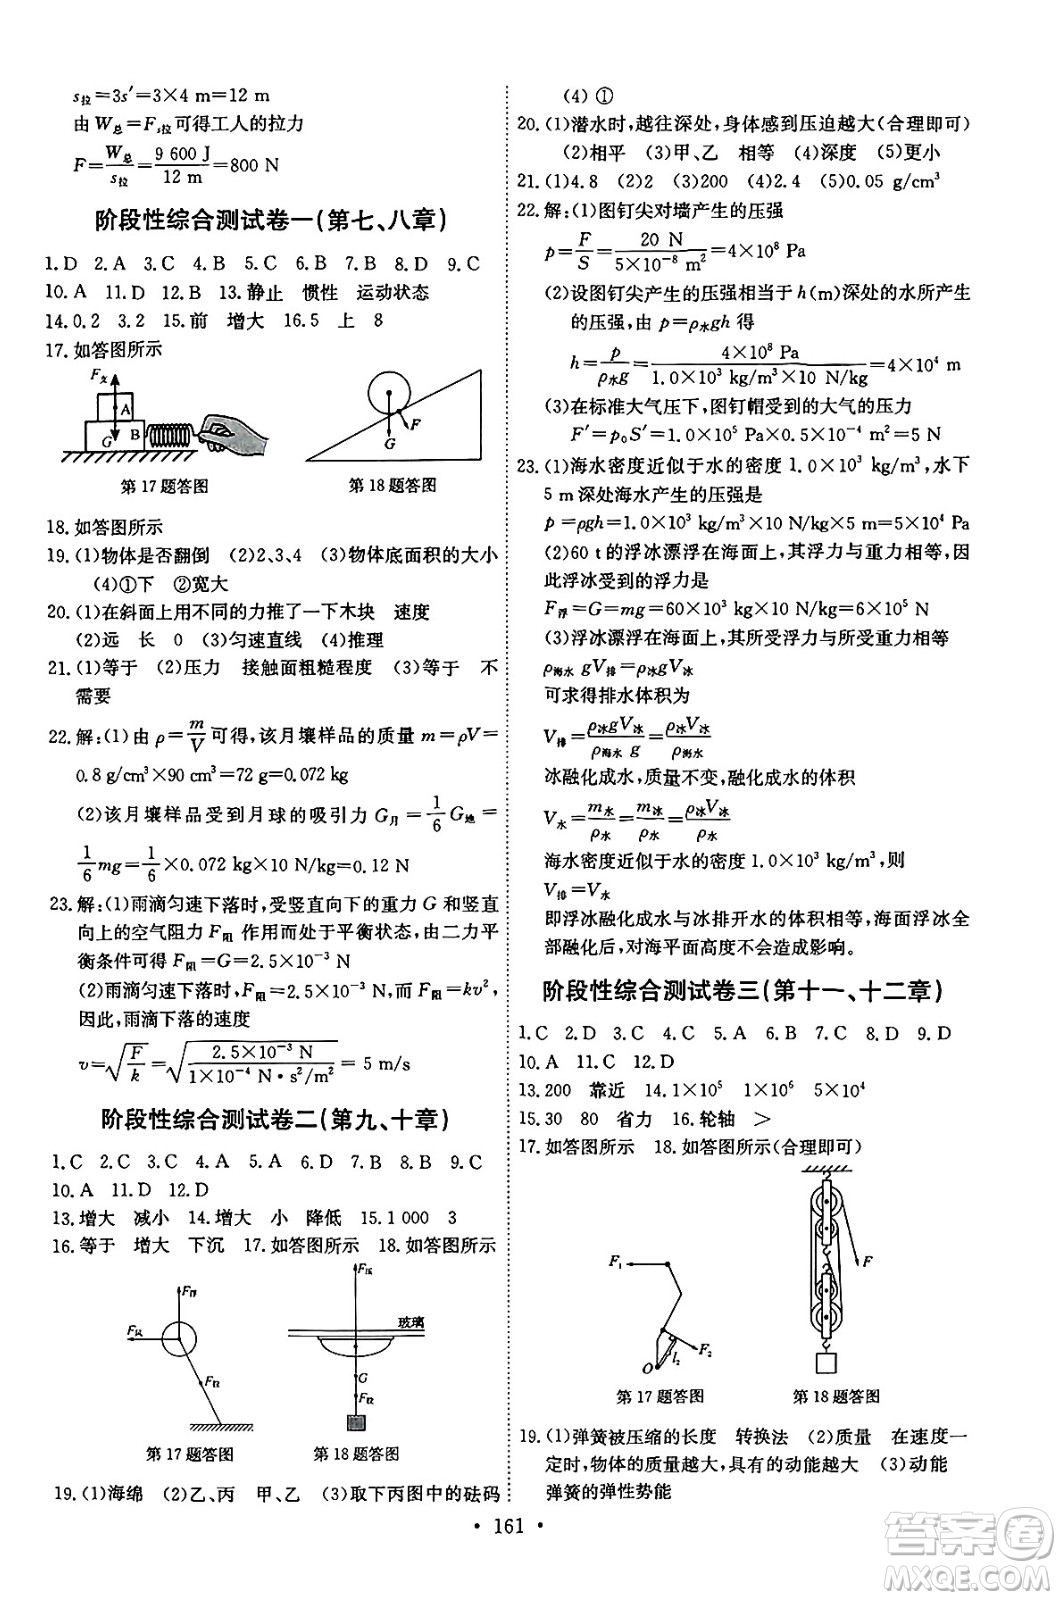 s拉=3s′=3×4 m=12 m
由 W总=F s拉可得工人的拉力
F=W总/s拉=9 600 J/12 m=800 N
阶段性综合测试卷一(第七、八章)
1.D 2.A 3.C 4.B 5.C 6.B 7.B 8.D 9.C
10.A 11.D 12.B 13.静止 惯性 运动状态
14.0.2 3.2 15.前 增大 16.5 上 8
17.如答图所示
F支
A
B
G
第17题答图
F
G
第18题答图
18.如答图所示
19.(1)物体是否翻倒 (2)2、3、4 (3)物体底面积的大小
(4)①下 ②宽大
20.(1)在斜面上用不同的力推了一下木块 速度
(2)远 长 0 (3)匀速直线 (4)推理
21.(1)等于 (2)压力 接触面粗糙程度 (3)等于 不
需要
22.解:(1)由 ρ=m/V可得,该月壤样品的质量 m=ρV=
0.8 g/cm³×90 cm³=72 g=0.072 kg
(2)该月壤样品受到月球的吸引力 G月=1/6 G地=
1/6 mg=1/6×0.072 kg×10 N/kg=0.12 N
23.解:(1)雨滴匀速下落时,受竖直向下的重力 G 和竖直
向上的空气阻力 F阻 作用而处于平衡状态,由二力平
衡条件可得 F阻=G=2.5×10⁻³ N
(2)雨滴匀速下落时,F阻=2.5×10⁻³ N,而 F阻=kv²,
因此,雨滴下落的速度
v=√(F/k)=√(2.5×10⁻³ N/1×10⁻⁴ N·s²/m²)=5 m/s
阶段性综合测试卷二(第九、十章)
1.C 2.C 3.B 4.A 5.A 6.D 7.B 8.B 9.C
10.A 11.D 12.D
13.增大 减小 14.增大 小 降低 15.1 000 3
16.等于 增大 下沉 17.如答图所示 18.如答图所示
F浮
F拉
第17题答图
玻璃
G
F拉
第18题答图
19.(1)海绵 (2)乙、丙 甲、乙 (3)取下丙图中的砝码
(4)①
20.(1)潜水时,越往深处,身体感到压迫越大(合理即可)
(2)相平 (3)甲、乙 相等 (4)深度 (5)更小
21.(1)4.8 (2)2 (3)200 (4)2.4 (5)0.05 g/cm³
22.解:(1)图钉尖对墙产生的压强
p=F/S=20 N/5×10⁻⁸ m²=4×10⁸ Pa
(2)设图钉尖产生的压强相当于 h(m)深处的水所产生
的压强,由 p=ρ水gh 得
h=p/ρ水g=4×10⁸ Pa/1.0×10³ kg/m³×10 N/kg=4×10⁴ m
(3)在标准大气压下,图钉帽受到的大气的压力
F′=p₀S′=1.0×10⁵ Pa×0.5×10⁻⁴ m²=5 N
23.(1)海水密度近似于水的密度 1.0×10³ kg/m³,水下
5 m深处海水产生的压强是
p=ρgh=1.0×10³ kg/m³×10 N/kg×5 m=5×10⁴ Pa
(2)60 t 的浮冰漂浮在海面上,其浮力与重力相等,因
此浮冰受到的浮力是
F浮=G=mg=60×10³ kg×10 N/kg=6×10⁵ N
(3)浮冰漂浮在海面上,其所受浮力与所受重力相等
ρ海水 gV排=ρ冰gV冰
可求得排水体积为
V排=ρ冰gV冰/ρ海水 g=ρ冰V冰/ρ海水
冰融化成水,质量不变,融化成水的体积
V水=m水/ρ水=m冰/ρ水=ρ冰V冰/ρ水
海水密度近似于水的密度 1.0×10³ kg/m³,则
V排=V水
即浮冰融化成水与冰排开水的体积相等,海面浮冰全
部融化后,对海平面高度不会造成影响。
阶段性综合测试卷三(第十一、十二章)
1.C 2.D 3.C 4.C 5.A 6.B 7.C 8.D 9.D
10.A 11.C 12.D
13.200 靠近 14.1×10⁵ 1×10⁶ 5×10⁵
15.30 80 省力 16.轮轴 >
17.如答图所示 18.如答图所示(合理即可)
F₁
F₂
l₂
O
第17题答图
F
第18题答图
19.(1)弹簧被压缩的长度 转换法 (2)质量 在速度一
定时,物体的质量越大,具有的动能越大 (3)动能
弹簧的弹性势能
• 161 •
答案圈
MXQE.COM